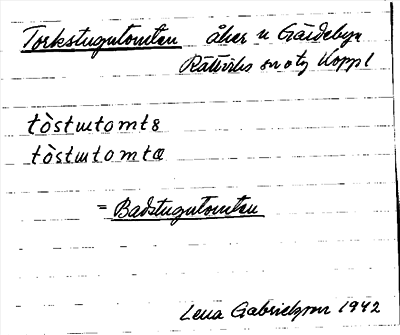 Torkstugutomten åker n Gärdebyn
Rättviks sn otg Kopp l
tòstɯtomtɞ
tòstɯtomtɑ
= Badstugutomten
Lena Gabrielsson 1942